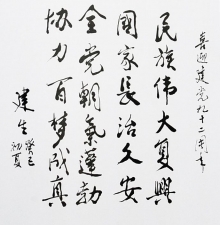 喜迎建党九十二周年
民族伟大复兴
国家长治久安
全党朝气蓬勃
协力百梦成真
建生
癸巳初夏